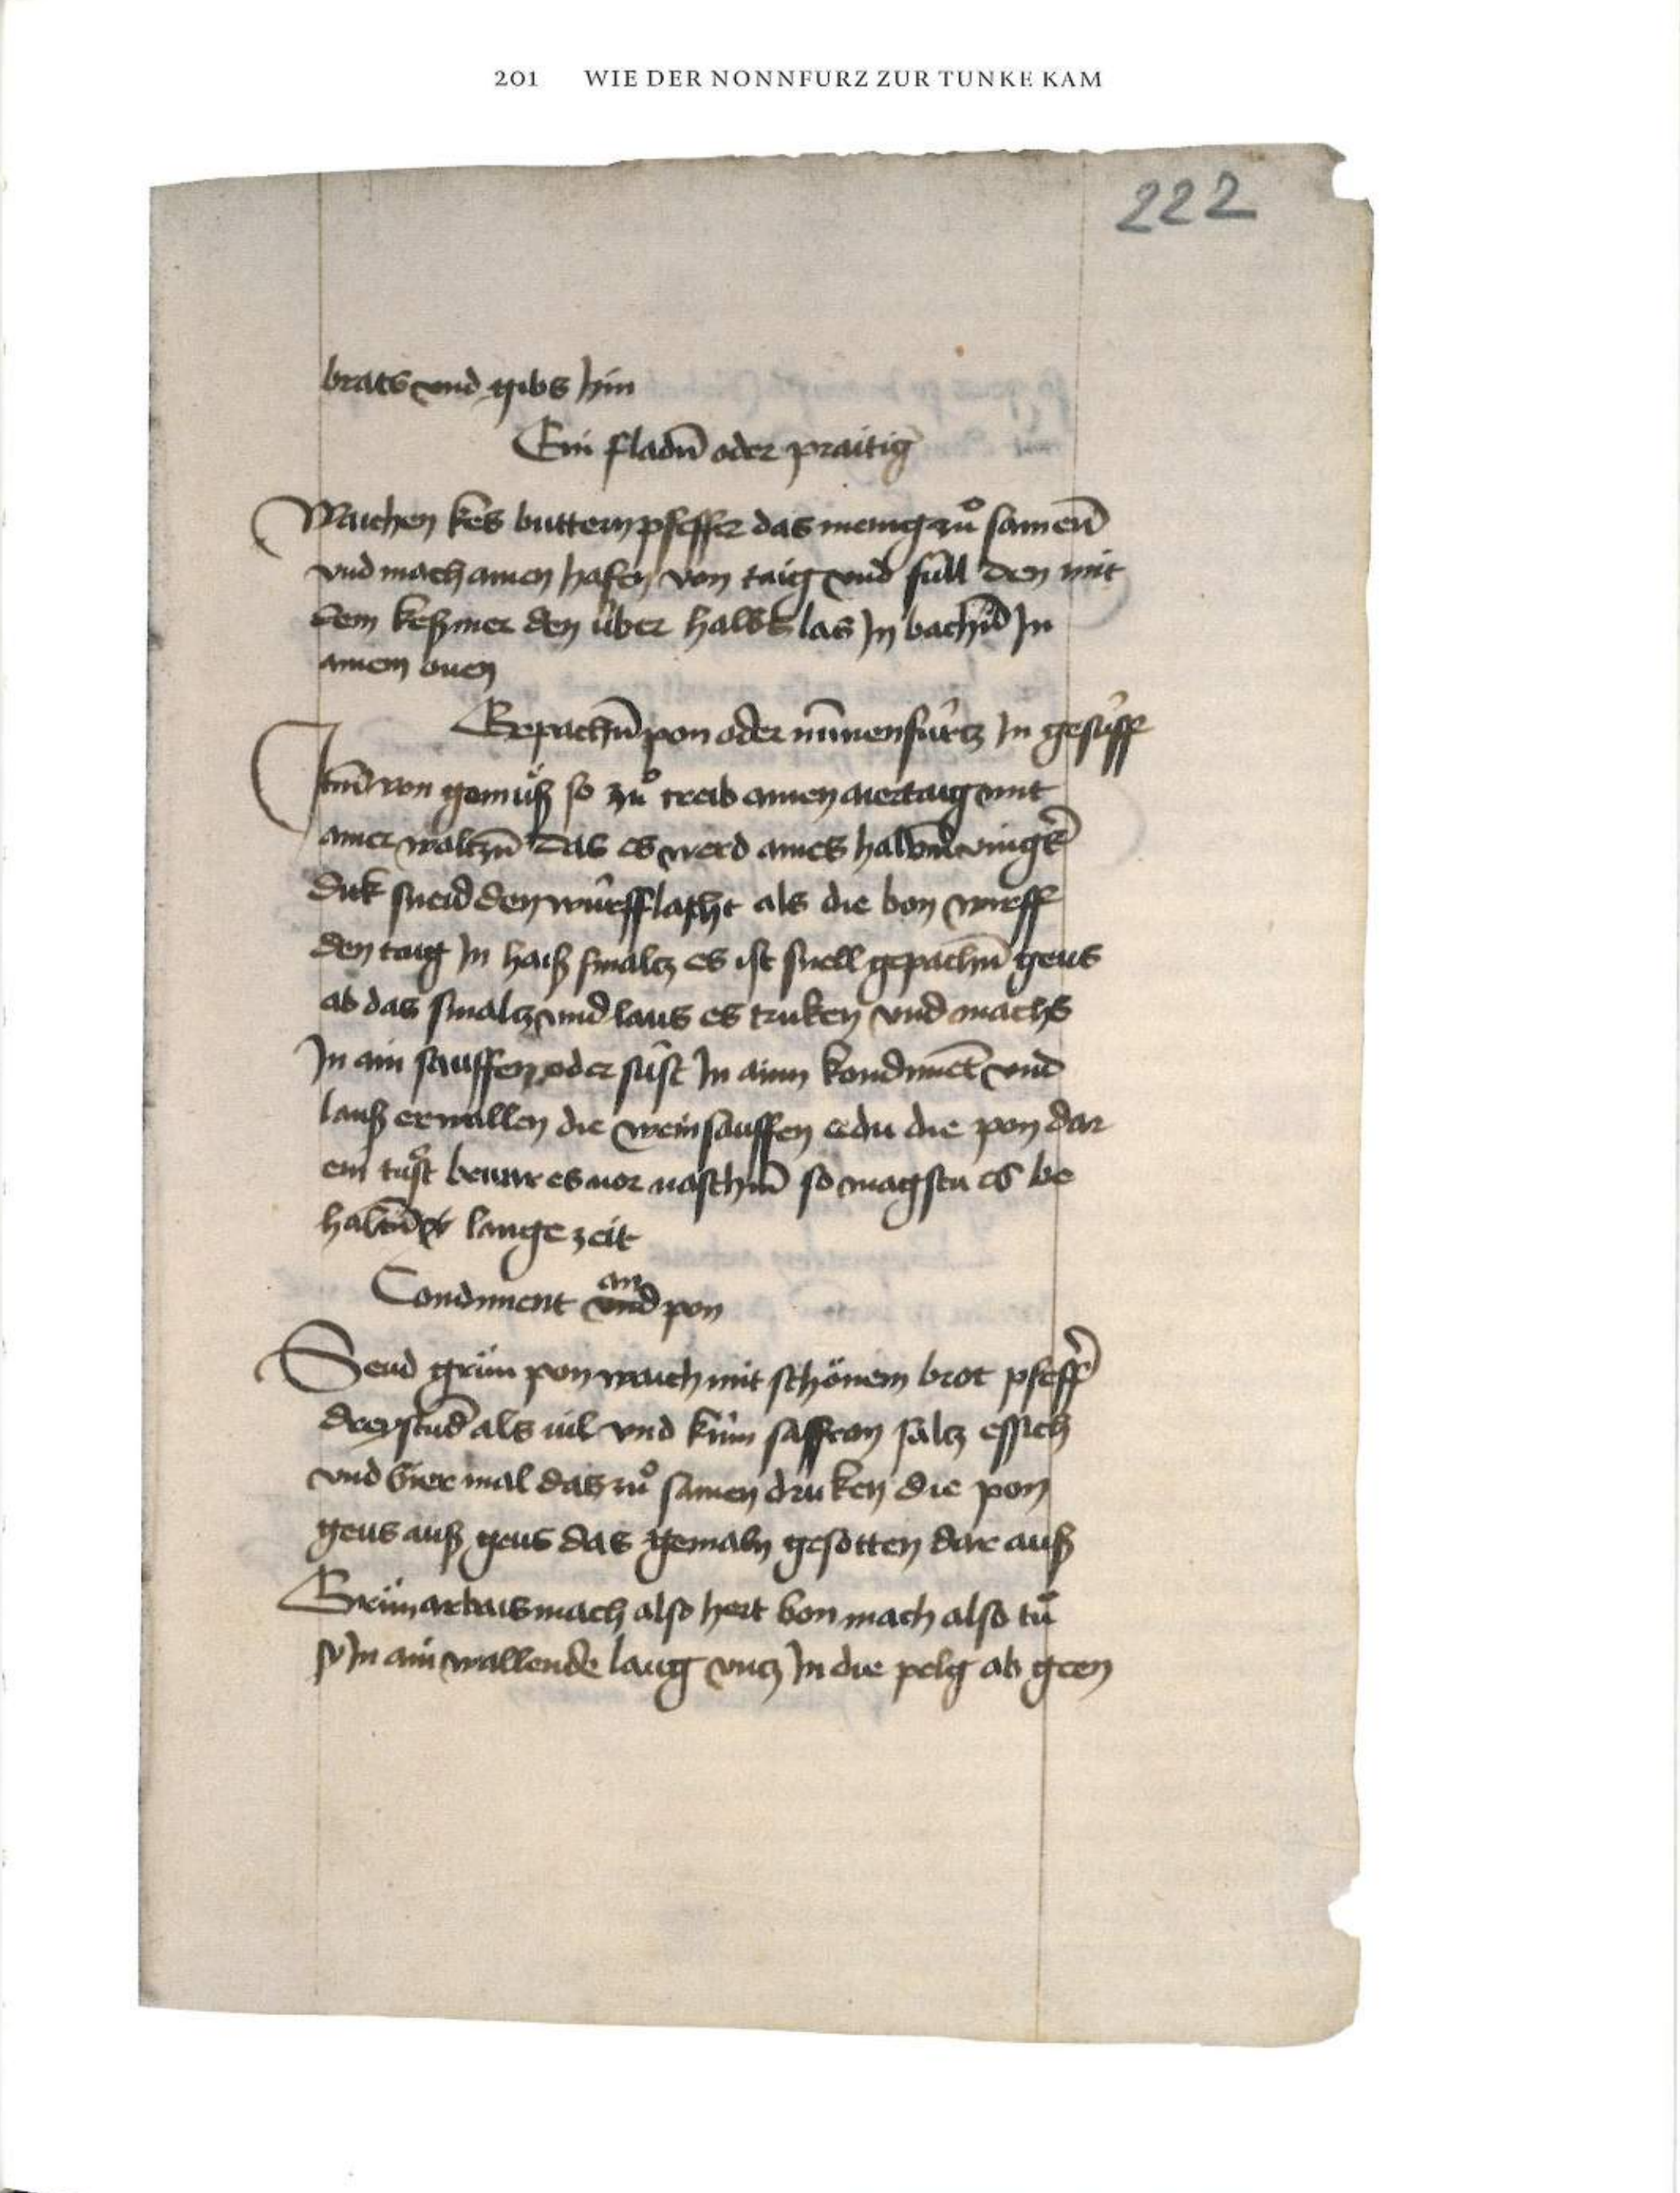 201 WIE DER NONNFURZ ZUR TUNKE KAM
222
brats vnd gibs hin
Ein fladn̄ oder praitig
Waichen kes buttern pfeffer das meng zů samen̄
vnd mach ainen hafen von taig vnd füll den mit
dem kes mer den über halbs las In bachn̄ In
ainem ouen
Gepachn̄ pon oder nūnenfürtz In gesüff
von gemüß so zů treib ainen aiertaig mit
ainer waltzn̄ das es werd aines halbn̄ vingers
dik sneid den würfflacht als die bon wirff
den taig In haiß smaltz es ist snell gepachn̄ geus
ab das smaltz vnd laus es truken vnd machs
In ain sauffen oder süst In ainn kondimēt vnd
lauß erwallen die weinsauffen e du die pon dar
ein tůst bewar es uor naschn̄ so magstu es be
haltn̄ lange zeit
Condiment an
vnd pon
Seud grün pon waich mit schönem brot pfeff
drystund als uil vnd küm saffron saltz essich
vnd bier mal das zů samen druken die pon
geus auß geus das gemaln gesotten dar auf
Grün arbais mach also hert bon mach also tů
sy In ain wallende laug vntz In die pelg ab geen